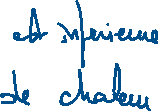 est inférieure
de chaleur